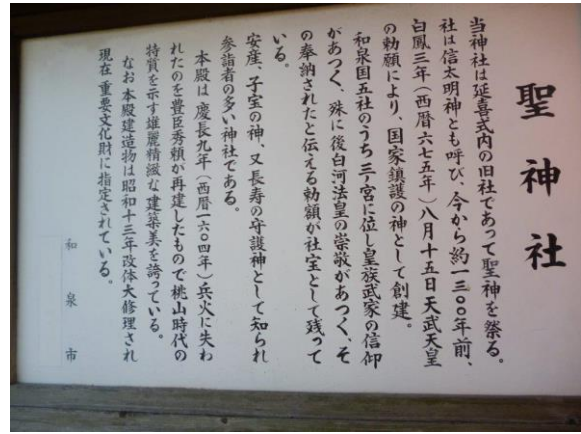 聖神社
当神社は延喜式内の旧社であって聖神を祭る。
社は信太明神とも呼び、今から約一三〇〇年前、
白鳳三年(西暦六七五年)八月十五日天武天皇
の勅願により、国家鎮護の神として創建。
和泉国五社のうち三ノ宮に位し皇族武家の信仰
があつく、殊に後白河法皇の崇敬があつく、そ
の奉納されたと伝える勅額が社宝として残って
いる。
安産、子宝の神、又長寿の守護神として知られ
参詣者の多い神社である。
本殿は慶長九年(西暦一六〇四年)兵火に失わ
れたのを豊臣秀頼が再建したもので桃山時代の
特質を示す雄麗精緻な建築美を誇っている。
なお本殿建造物は昭和十三年改体大修理され
現在重要文化財に指定されている。
和泉市